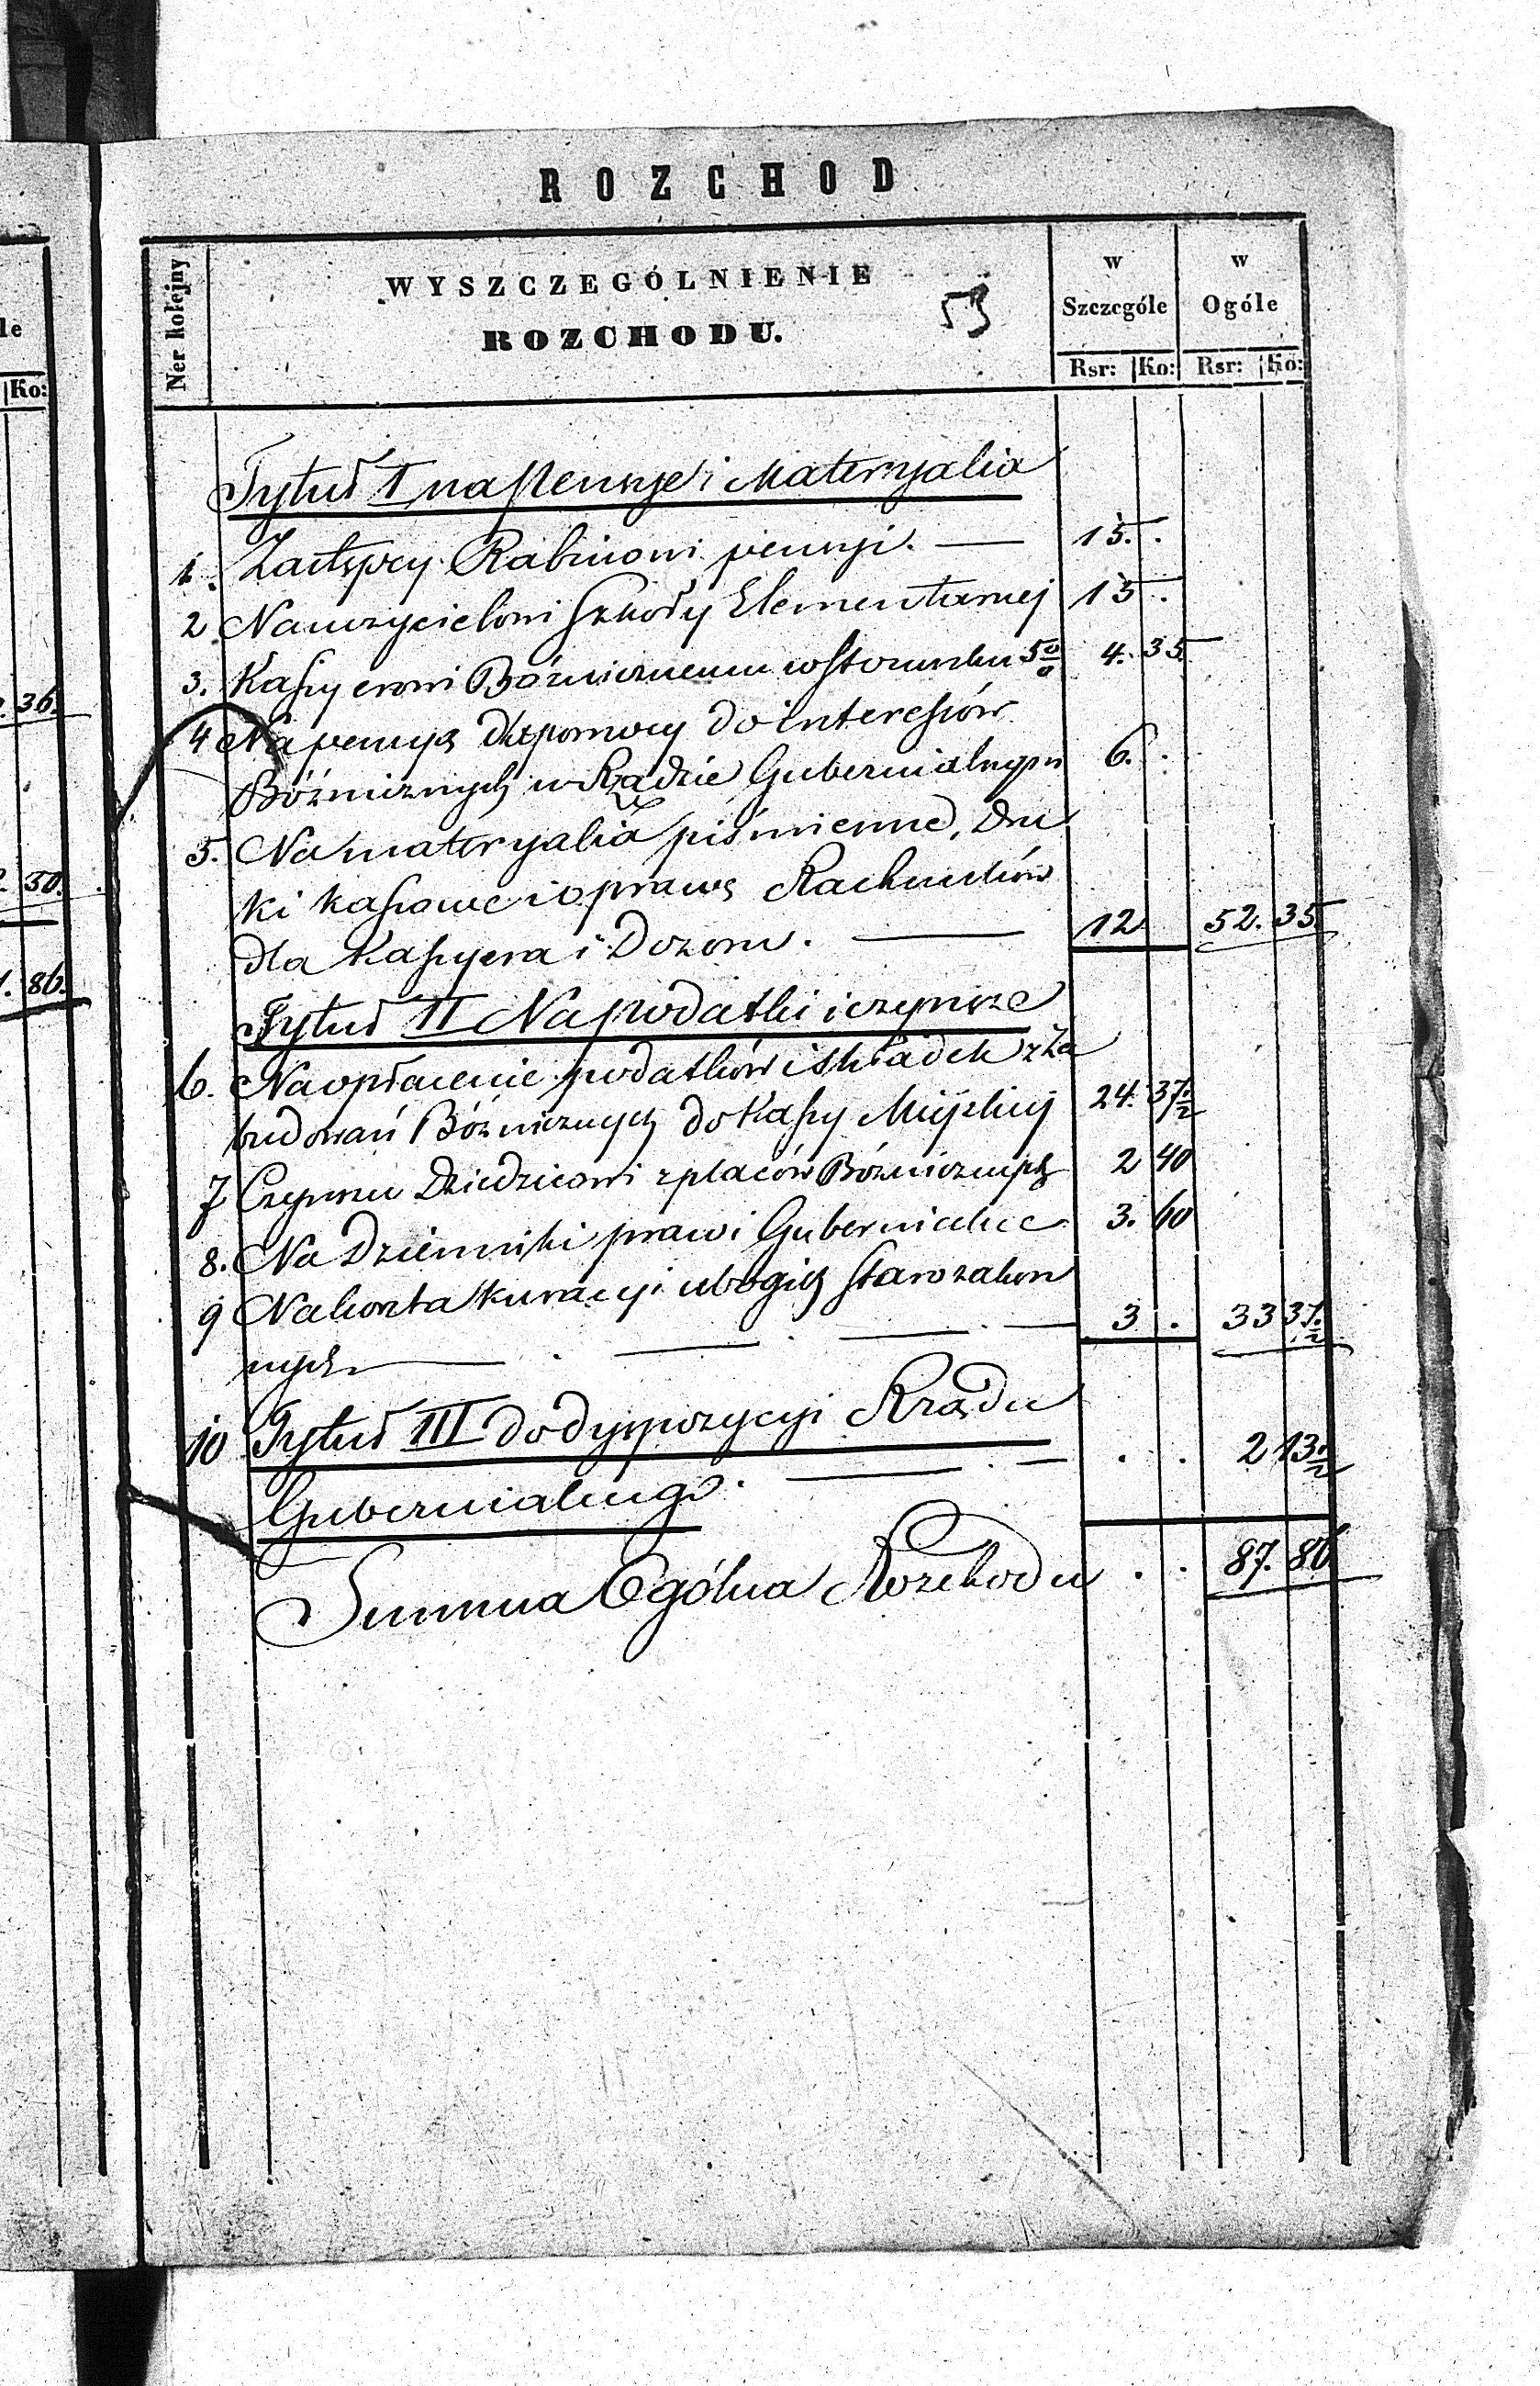 ROZCHOD
Ner kolejny
WYSZCZEGÓLNIENIE
ROZCHODU.
53
w Szczególe
w Ogóle
Rsr: Ko: Rsr: Ko:
le
Ko:
36.
50.
86.
Tytuł I na Pensye i Materyalia
1. Zastępcy Rabinowi pensyi. — 15. .
2 Nauczycielowi Szkoły Elementarnej 15 .
3. Kassyerowi Bóżnicznemu w stosunku 5 0/0 4. 35.
4 Na pensyą dla pomocy do interessów
Bóżnicznych w Rządzie Gubernialnym 6. .
5. Na materyalia piśmienne, dru
ki kassowe i oprawę Rachunków
dla Kassyera i Dozoru. — 12 52. 35
Tytuł II Na podatki i czynsze
6. Na opłacenie podatków i składek z Za
budowań Bóżnicznych do Kassy Miejskiej 24. 37 1/2
7 Czynszu Dziedzicowi z placów Bóżnicznych 2 40
8. Na Dzienniki praw i Gubernialne 3. 60
9 Na koszta kuracyi ubogich starozakon
nych — . — . — 3 . 33 37 1/2
10 Tytuł III do dyspozycyi Rządu
Gubernialnego. — . — . . 2 13 1/2
Summa Ogólna Rozchodu . . 87. 86